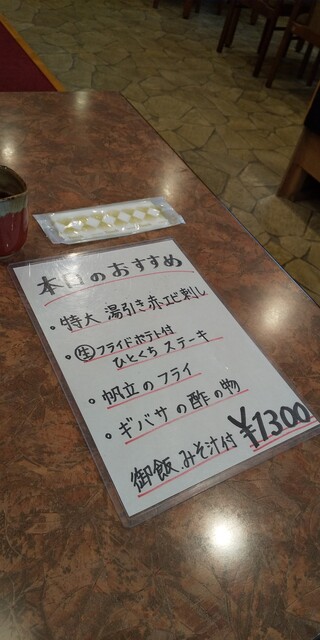 本日のおすすめ
・特大 湯引き赤エビ刺し
・牛フライドポテト付
ひとくちステーキ
・帆立のフライ
・ギバサの酢の物
御飯、みそ汁付 ¥1300